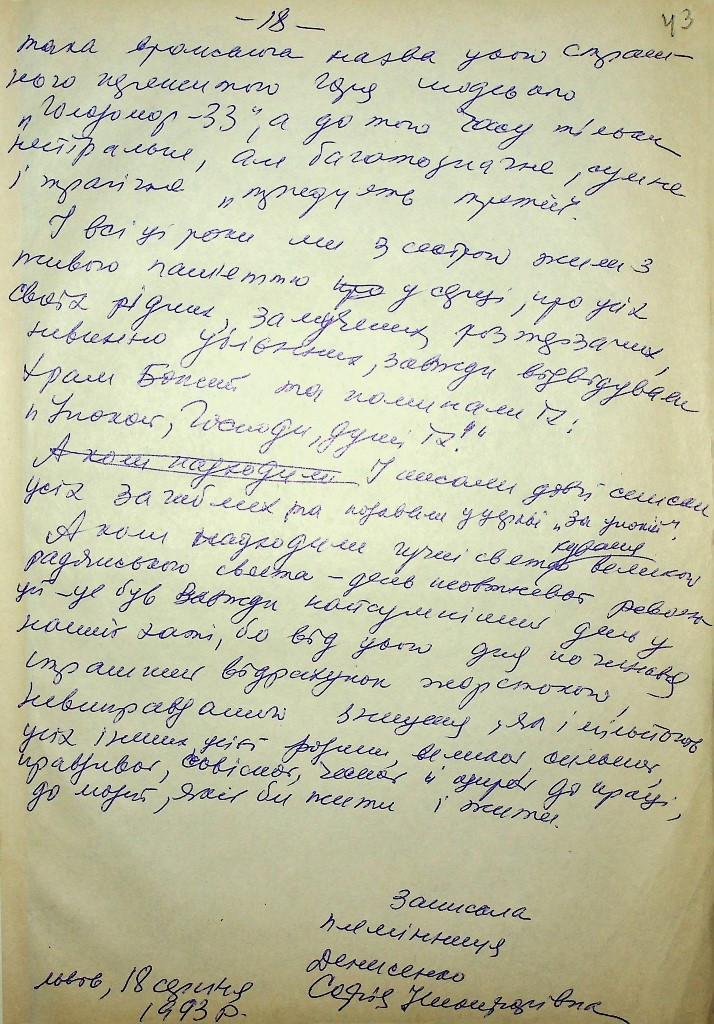 – 18 –
43
така громсанга назва усього страш-
ного пережитого горя людського
„Голодомор-33", а до того часу тільки
нейтральне, але багатозначне, сумне
і трагічне
І всі ці роки ми з сестрою жили з
живою пам'яттю про у серці, про усіх
своїх рідних, замучених, розтерзаних,
невинно убієнних, завжди відвідували
храм Божий та поминали їх:
„Упокой, Господи, душі їх!"
А коли надходили І писали довгі списки
усіх загиблих та подавали у церкві „За упокій".
А коли надходили гучні свята великого
радянського свята – день жовтневої револю-
ції – це був завжди найсумніший день у
нашій хаті, бо від цього дня починався
страшний відрахунок жорстокого,
невиправданого знищення, як і мільйонів
усіх інших, усієї родини, великої, сильної,
правдивої, совісної, чесної й щирої до праці,
до людей, якій би жити і жити.
Записала
племінниця
Денисенко
Софія
Львів, 18 серпня
1993 р.